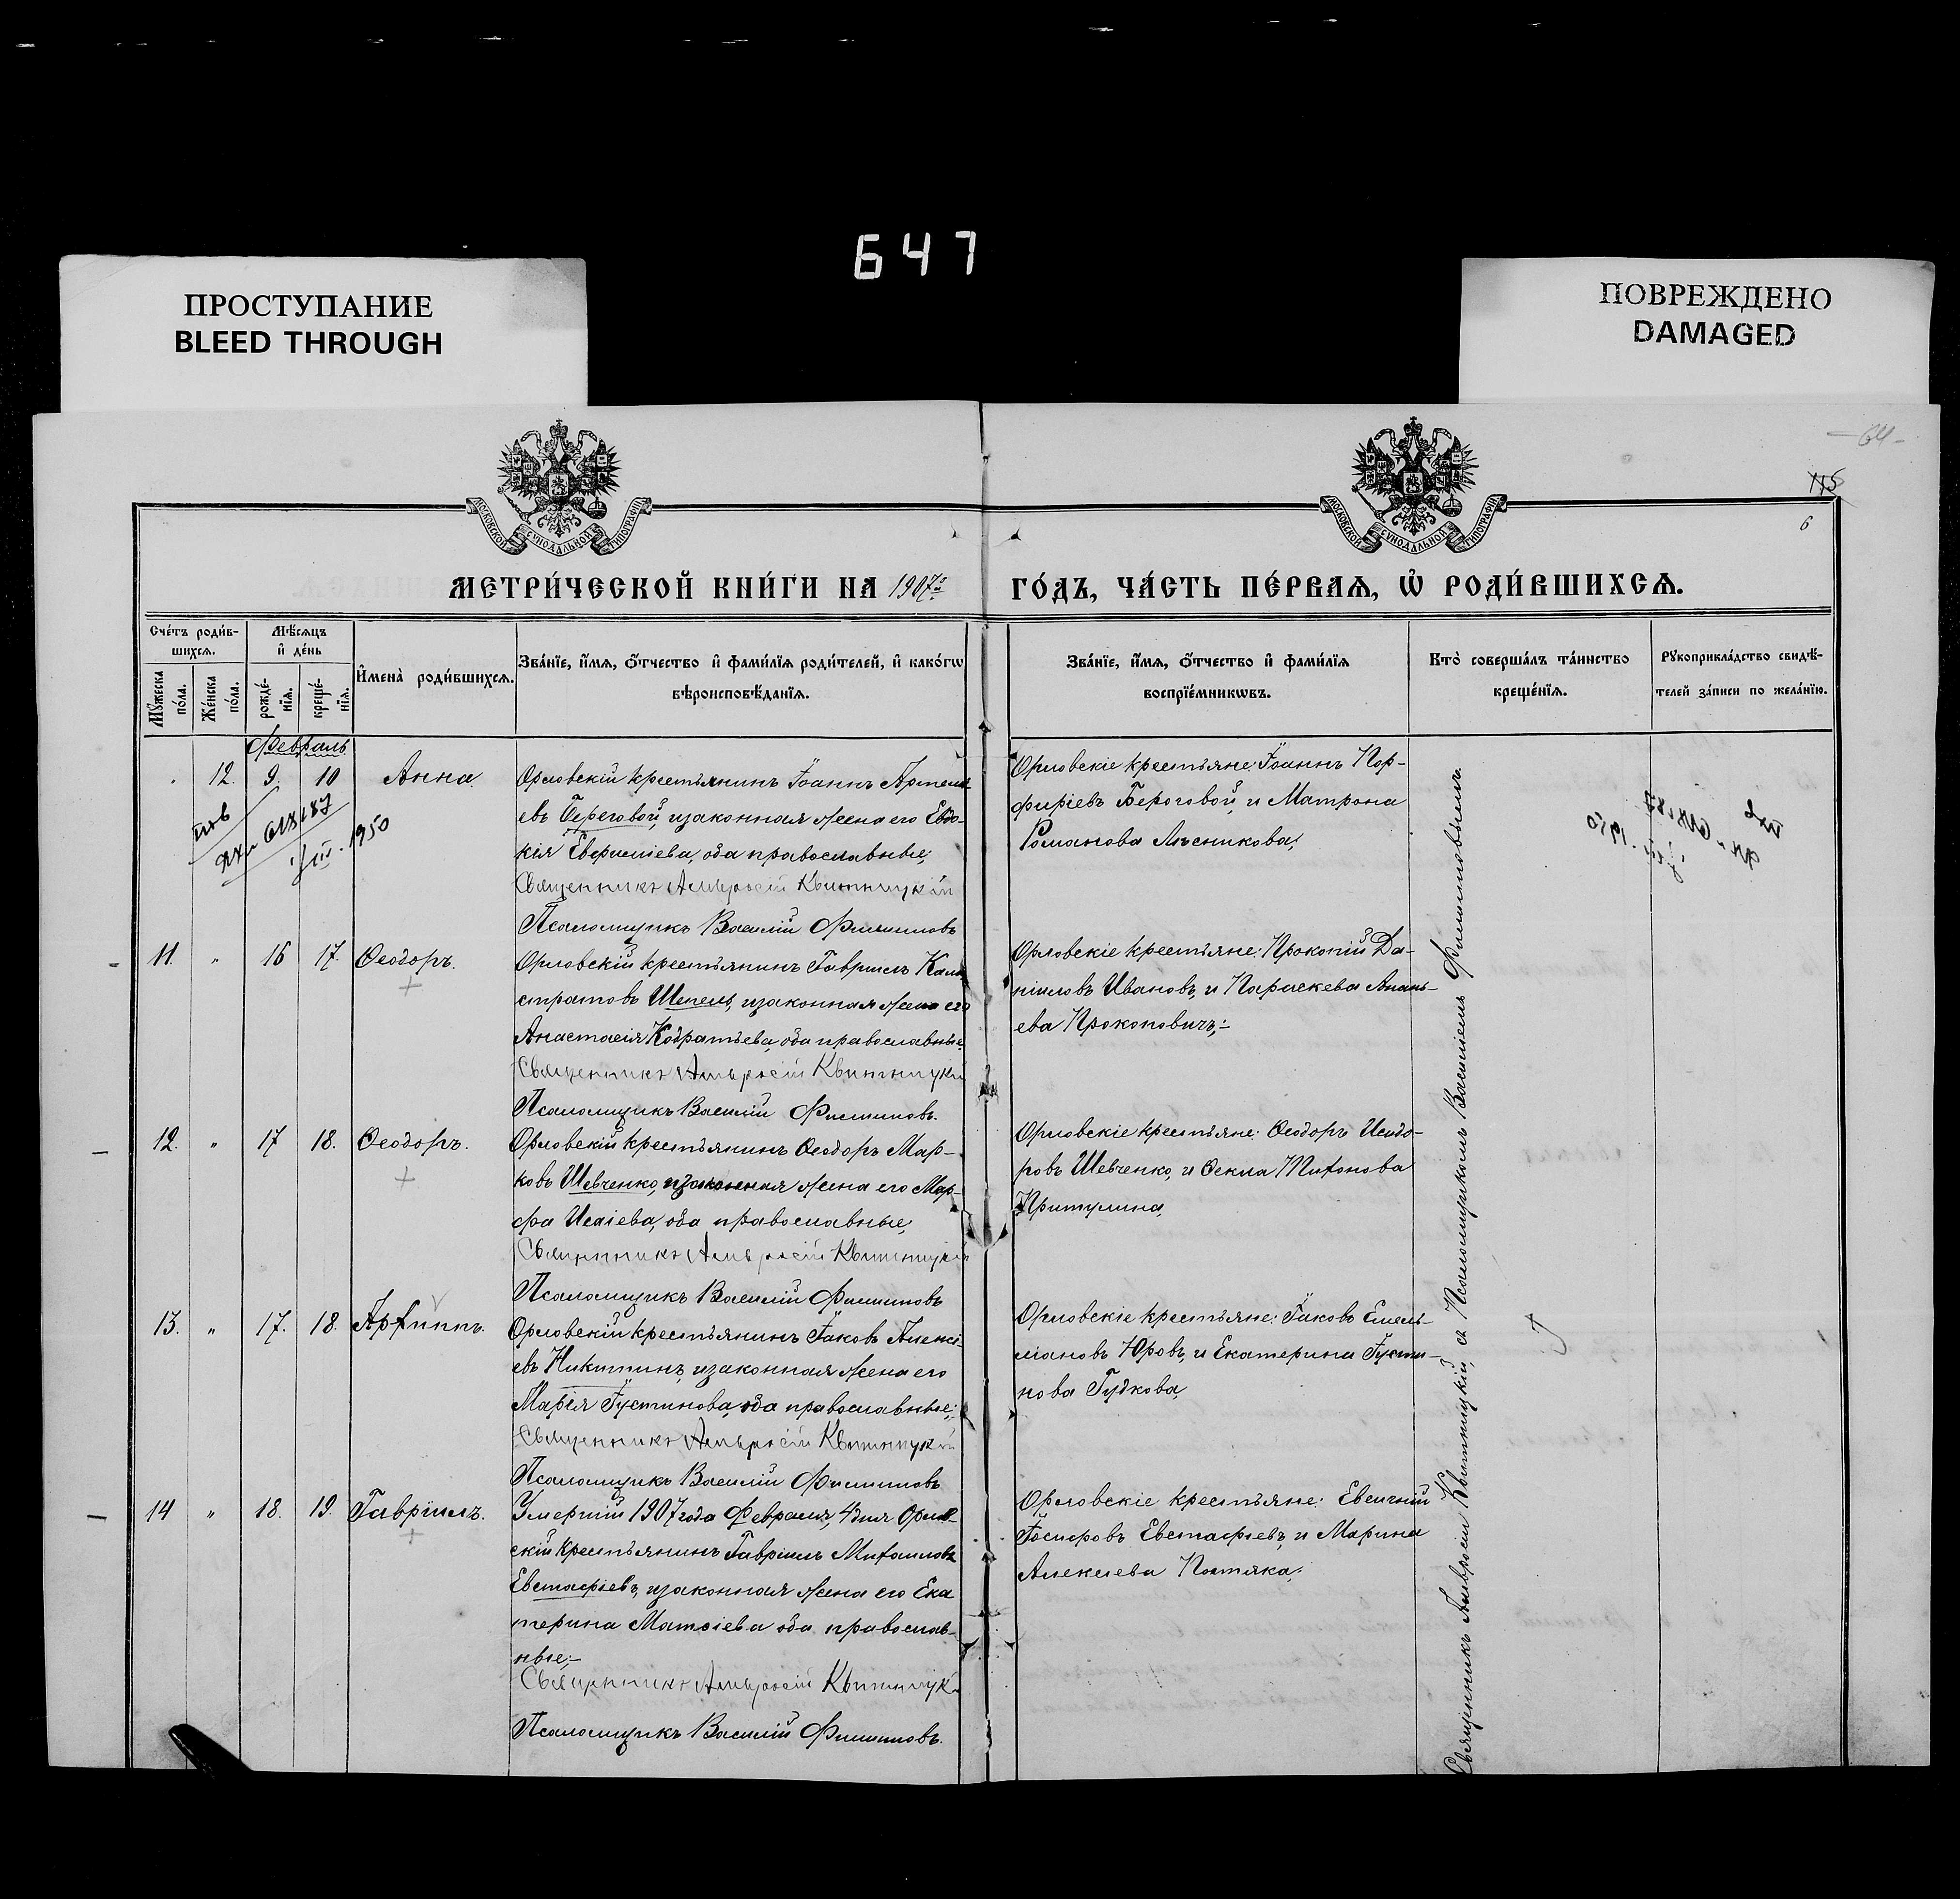 647
ПРОСТУПАНИЕ
BLEED THROUGH
ПОВРЕЖДЕНО
DAMAGED
64
115
6
МОСКОВСКОЙ СѴНОДАЛЬНОЙ ТИПОГРАФІИ
МОСКОВСКОЙ СѴНОДАЛЬНОЙ ТИПОГРАФІИ
МЕТРИ́ЧЕСКОЙ КНИ́ГИ НА 1907й
ГО́ДЪ, ЧА́СТЬ ПЕ́РВАѦ, Ѡ҆ РОДИ́ВШИХСѦ.
Сче́тъ роди́в-
шихсѧ.
Мꙋ́жеска по́ла.
Же́нска по́ла.
Мѣ́сѧцъ
и҆ де́нь
рожде́-нїѧ.
креще́-нїѧ.
И҆мена̀ роди́вшихсѧ.
Зва́нїе, и҆́мѧ, ѻ҆́тчество и҆ фами́лїѧ роди́телей, и҆ како́гѡ
вѣроисповѣ́данїѧ.
Зва́нїе, и҆́мѧ, ѻ҆́тчество и҆ фами́лїѧ
воспрїе́мникѡвъ.
Кто̀ соверша́лъ та́инство
креще́нїѧ.
Рꙋкоприкла́дство свидѣ́-
телей за́писи по жела́нїю.
Февраль
12. 9. 10 Анна.
1950
Орловскій крестьянинъ Іоаннъ Артемь
евъ Береговой, и законная жена его Евдо-
кія Евфиміева, оба православные;
Священникъ Амвросій Квитницкій
Псаломщикъ Василій Филипповъ
Орловскіе крестьяне: Іоаннъ Пор-
фиріевъ Береговой, и Матрона
Романова Лѣсникова;
11. " 16 17. Ѳеодоръ.
Орловскій крестьянинъ Гавріилъ Кали
стратовъ Шепель, и законная жена его
Анастасія Кодратьева, оба православные.
Священникъ Амвросій Квитницкій
Псаломщикъ Василій Филипповъ.
Орловскіе крестьяне: Прокопій Да-
ніиловъ Ивановъ, и Параскева Анань-
ева Прокоповичъ;-
12. " 17 18. Ѳеодоръ.
Орловскій крестьянинъ Ѳеодоръ Мар-
ковъ Шевченко, и законная жена его Мар-
фа Исаіева, оба православные;
Священникъ Амвросій Квитницкій
Псаломщикъ Василій Филипповъ
Орловскіе крестьяне: Ѳеодоръ Исидо-
ровъ Шевченко, и Ѳекла Титонова
Притулина,
13. " 17. 18. Архиппъ.
Орловскій крестьянинъ Іаковъ Алексі-
евъ Никитинъ, и законная жена его
Марія Іустинова, оба православные;
Священникъ Амвросій Квитницкій
Псаломщикъ Василій Филипповъ
Орловскіе крестьяне: Іаковъ Емель-
яновъ Юровъ, и Екатерина Іусти-
нова Гудкова,
14 " 18. 19. Гавріилъ.
Умершій 1907 года Февраля, 4 дня Орлов-
скій крестьянинъ Гавріилъ Михаиловъ
Евстафіевъ, и законная жена его Ека
терина Матѳіева оба православ-
ные;-
Священникъ Амвросій Квитницкій
Псаломщикъ Василій Филипповъ.
Орловскіе крестьяне: Евгеній
Іосифовъ Евстафіевъ, и Марина
Алексіева Потяка;
Священникъ Амвросій Квитницкій, съ Псаломщикомъ Василіемъ Филипповымъ.